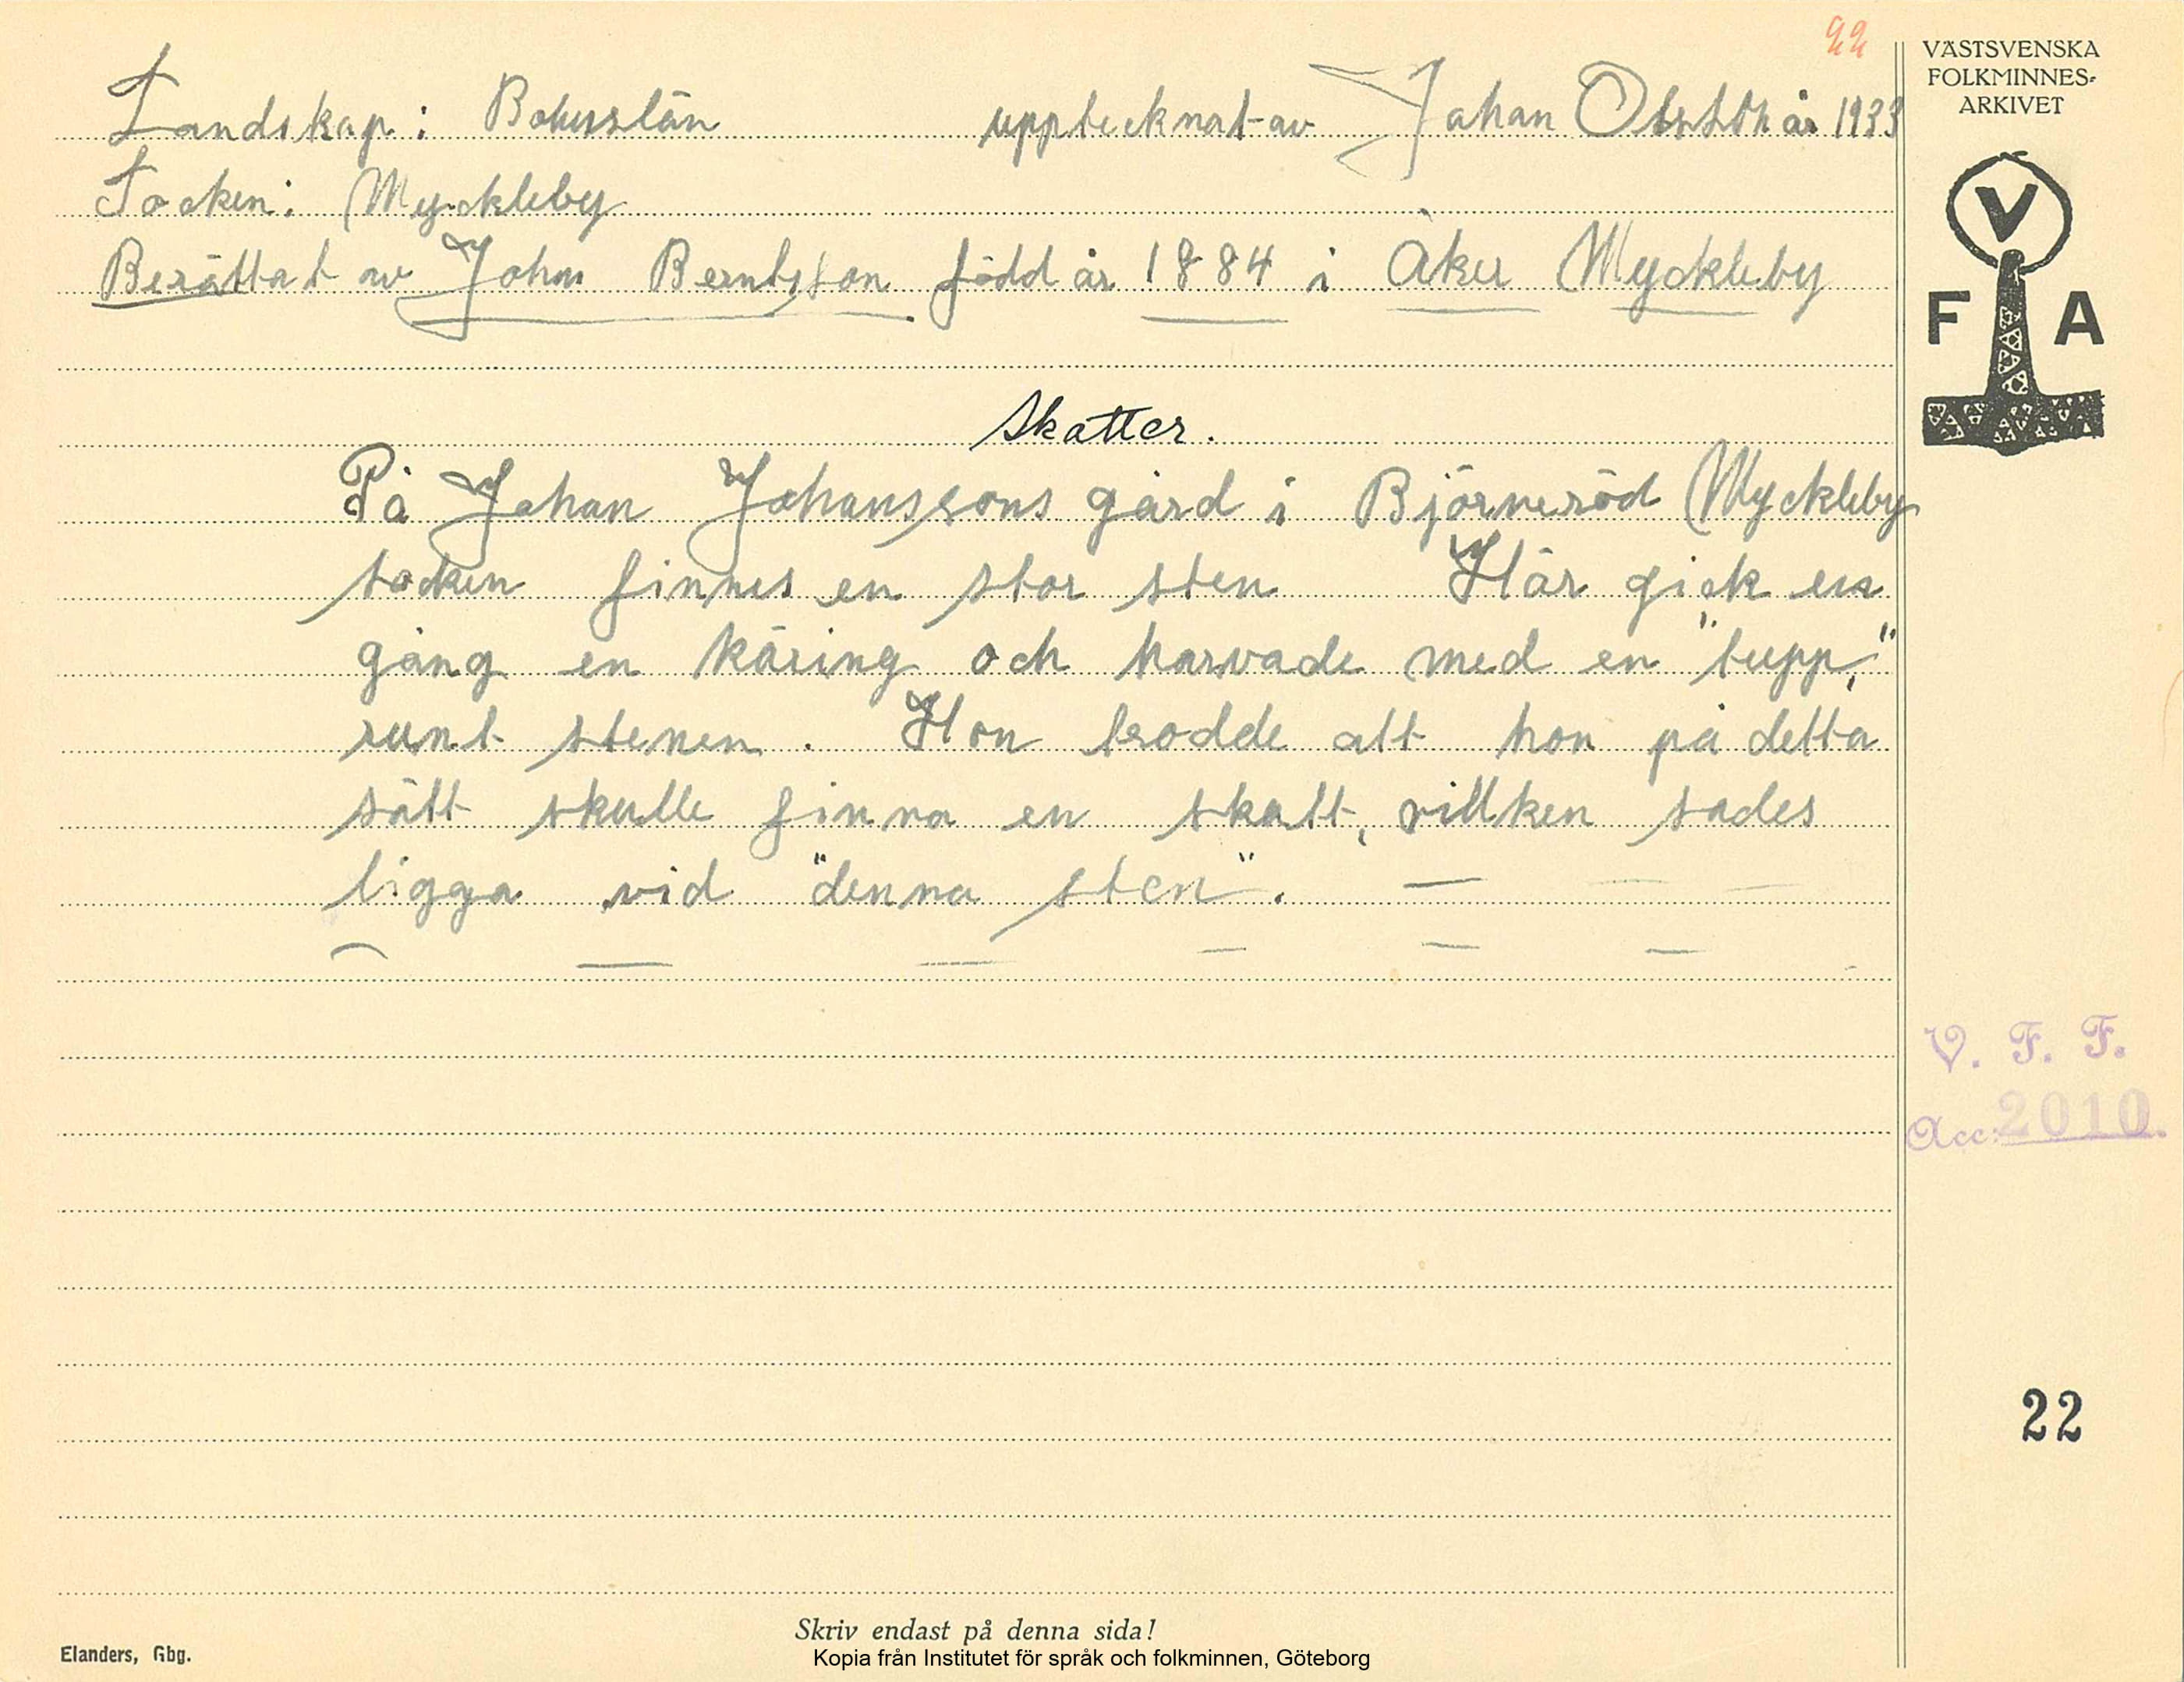 22
VÄSTSVENSKA
FOLKMINNES-
ARKIVET
Landskap: Bohuslän upptecknat av Johan år 1933
Socken: Myckleby
Berättat av Johan Berntsson född år 1884 i Åker Myckleby
V
F A
Skatter.
På Johan Johanssons gård i Björneröd Myckleby
socken finnes en stor sten Här gick en
gång en käring och harvade med en "tupp,"
runt stenen. Hon trodde att hon på detta
sätt skulle finna en skatt, villken sades
ligga vid "denna sten". — — —
— — — — — —
V. F. F.
Acc: 2010.
22
Skriv endast på denna sida!
Elanders, Gbg.
Kopia från Institutet för språk och folkminnen, Göteborg